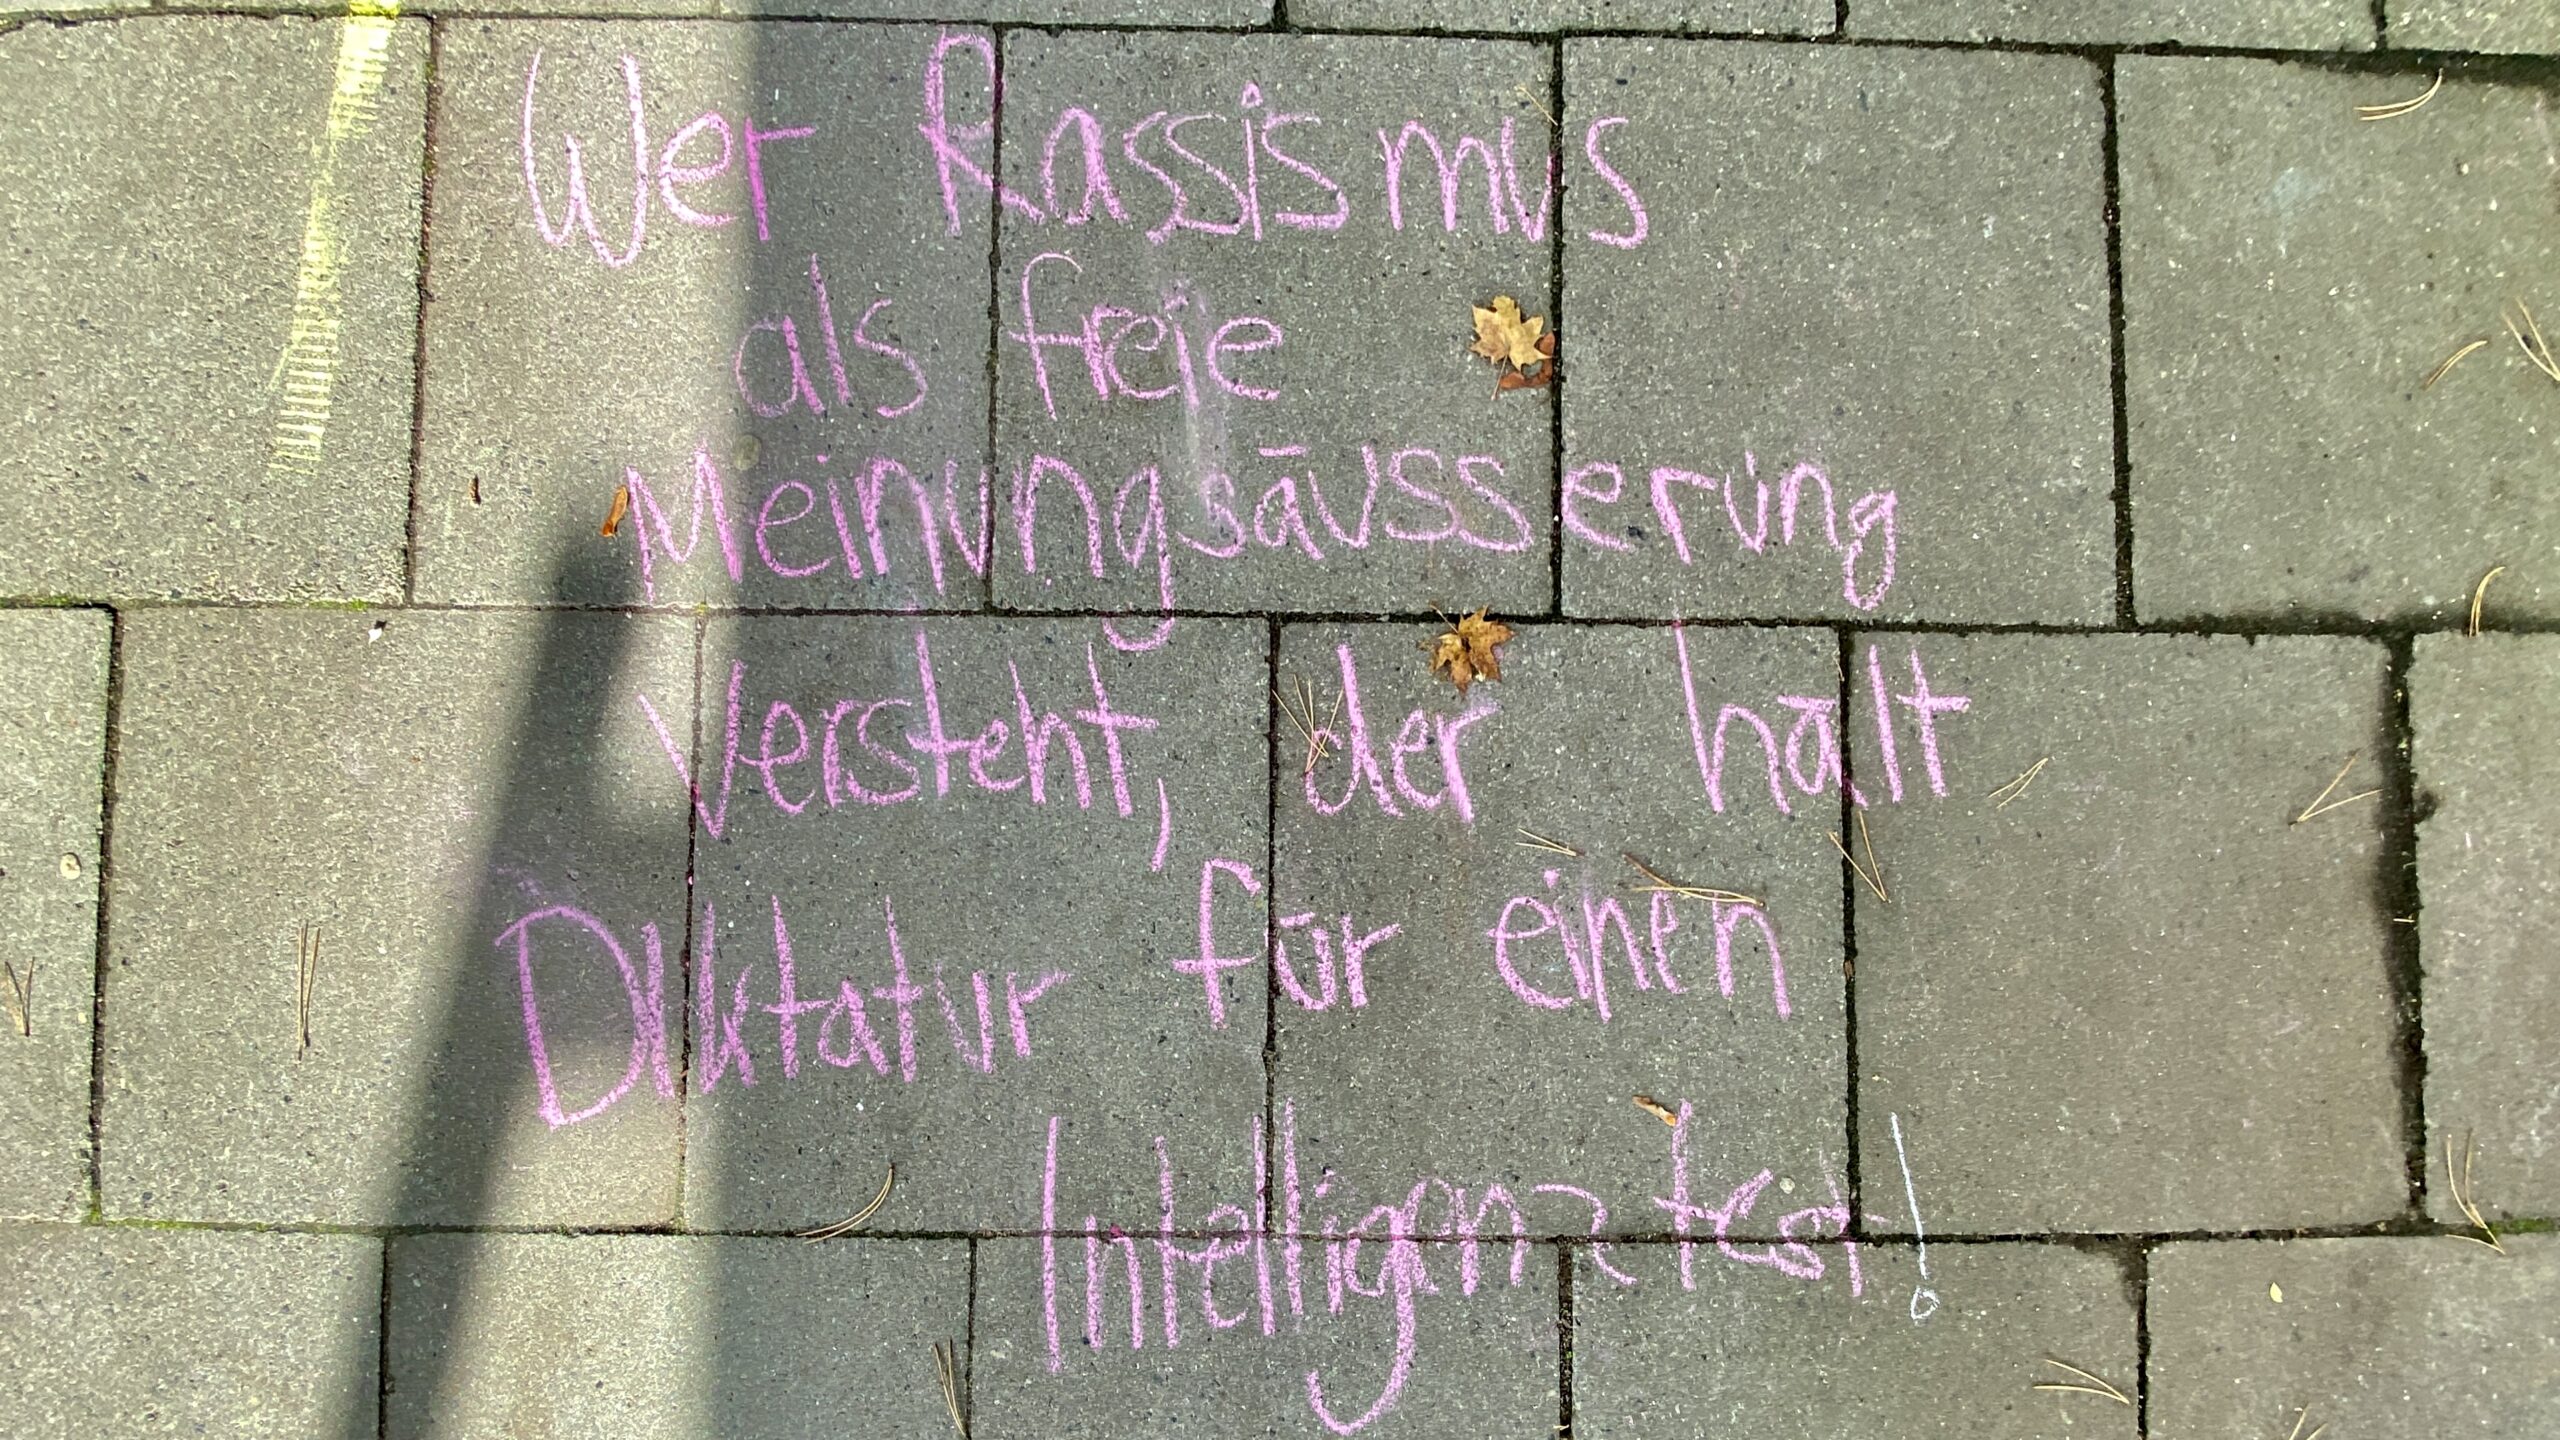 Wer Rassismus
als freie
Meinungsäusserung
versteht, der hält
Diktatur für einen
Intelligenztest!